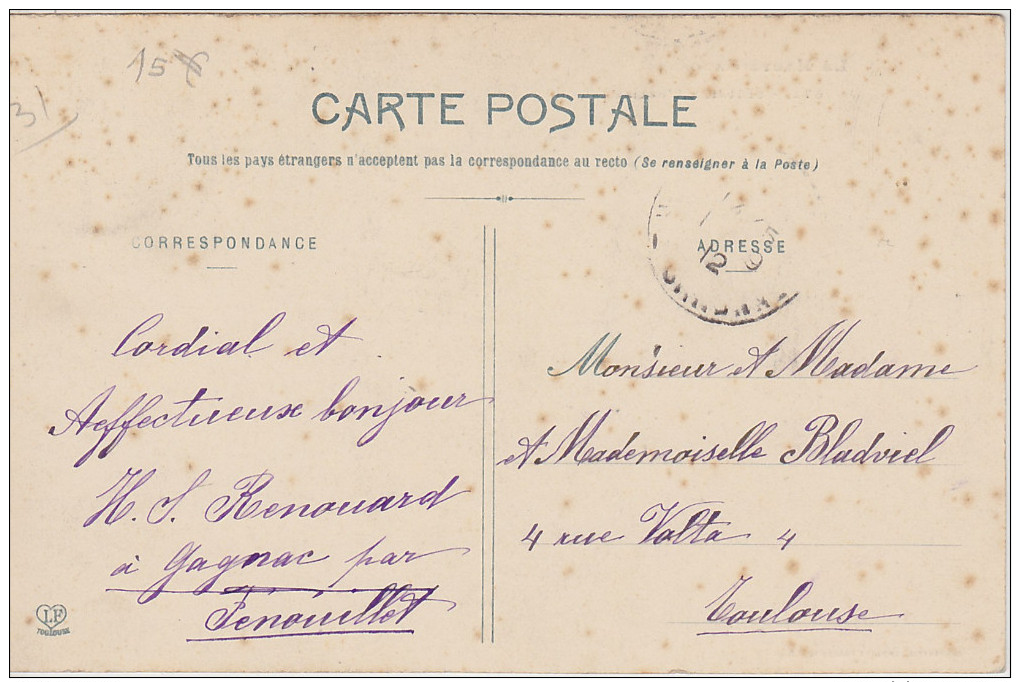 15
31
CARTE POSTALE
Tous les pays étrangers n'acceptent pas la correspondance au recto (Se renseigner à la Poste)
CORRESPONDANCE
Cordial et
Aeffectueux bonjour
H. S. Renouard
à Gagnac par
Fenouillet
LF
TOULOUSE
ADRESSE
Monsieur et Madame
et Mademoiselle Bladviel
4 rue Volta 4
Toulouse